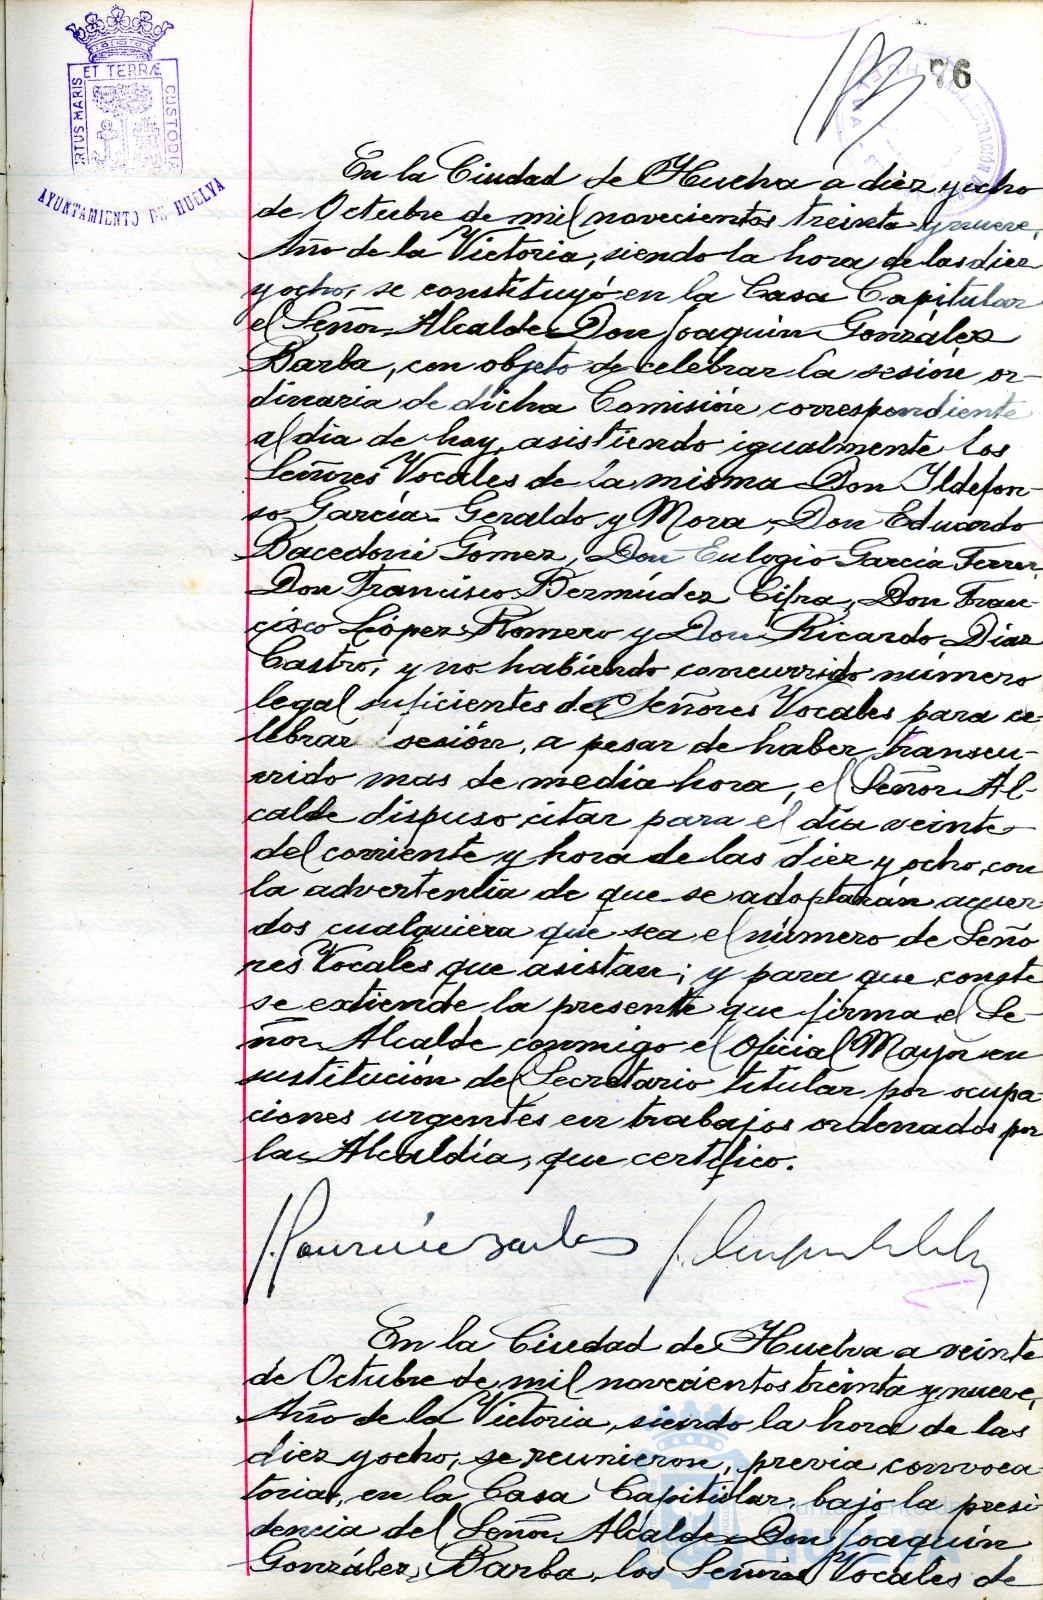 76
ET TERRÆ
RTUS MARIS
CUSTODIA
AYUNTAMIENTO DE HUELVA
En la Ciudad de Huelva a diez y ocho
de Octubre de mil novecientos treinta y nueve,
Año de la Victoria, siendo la hora de las diez
y ocho, se constituyó en la Casa Capitular
el Señor Alcalde Don Joaquín González
Barba, con objeto de celebrar la sesión or-
dinaria de dicha Comisión correspondiente
al dia de hoy, asistiendo igualmente los
Señores Vocales de la misma Don Ildefon-
so García-Geraldo y Mora, Don Eduardo
Bacedoni Gómez, Don Eulogio García Ferrer,
Don Francisco Bermúdez Cifra, Don Fran-
cisco López Romero y Don Ricardo Díaz
Castro, y no habiendo concurrido número
legal suficientes de Señores Vocales para ce-
lebrar sesión, a pesar de haber transcu-
rrido mas de media hora, el Señor Al-
calde dispuso citar para el día veinte
del corriente y hora de las diez y ocho, con
la advertencia de que se adoptarán acuer
dos cualquiera que sea el número de Seño
res Vocales que asistan; y para que conste
se extiende la presente que firma el Se-
ñor Alcalde conmigo el Oficial Mayor en
sustitución del Secretario titular por ocupa-
ciones urgentes en trabajos ordenados por
la Alcaldía, que certifico.
En la Ciudad de Huelva a veinte
de Octubre de mil novecientos treinta y nueve,
Año de la Victoria, siendo la hora de las
diez y ocho, se reunieron, previa convoca
toria, en la Casa Capitular, bajo la presi
dencia del Señor Alcalde Don Joaquín
González Barba, los Señores Vocales de
Ayuntamiento de
HUELVA